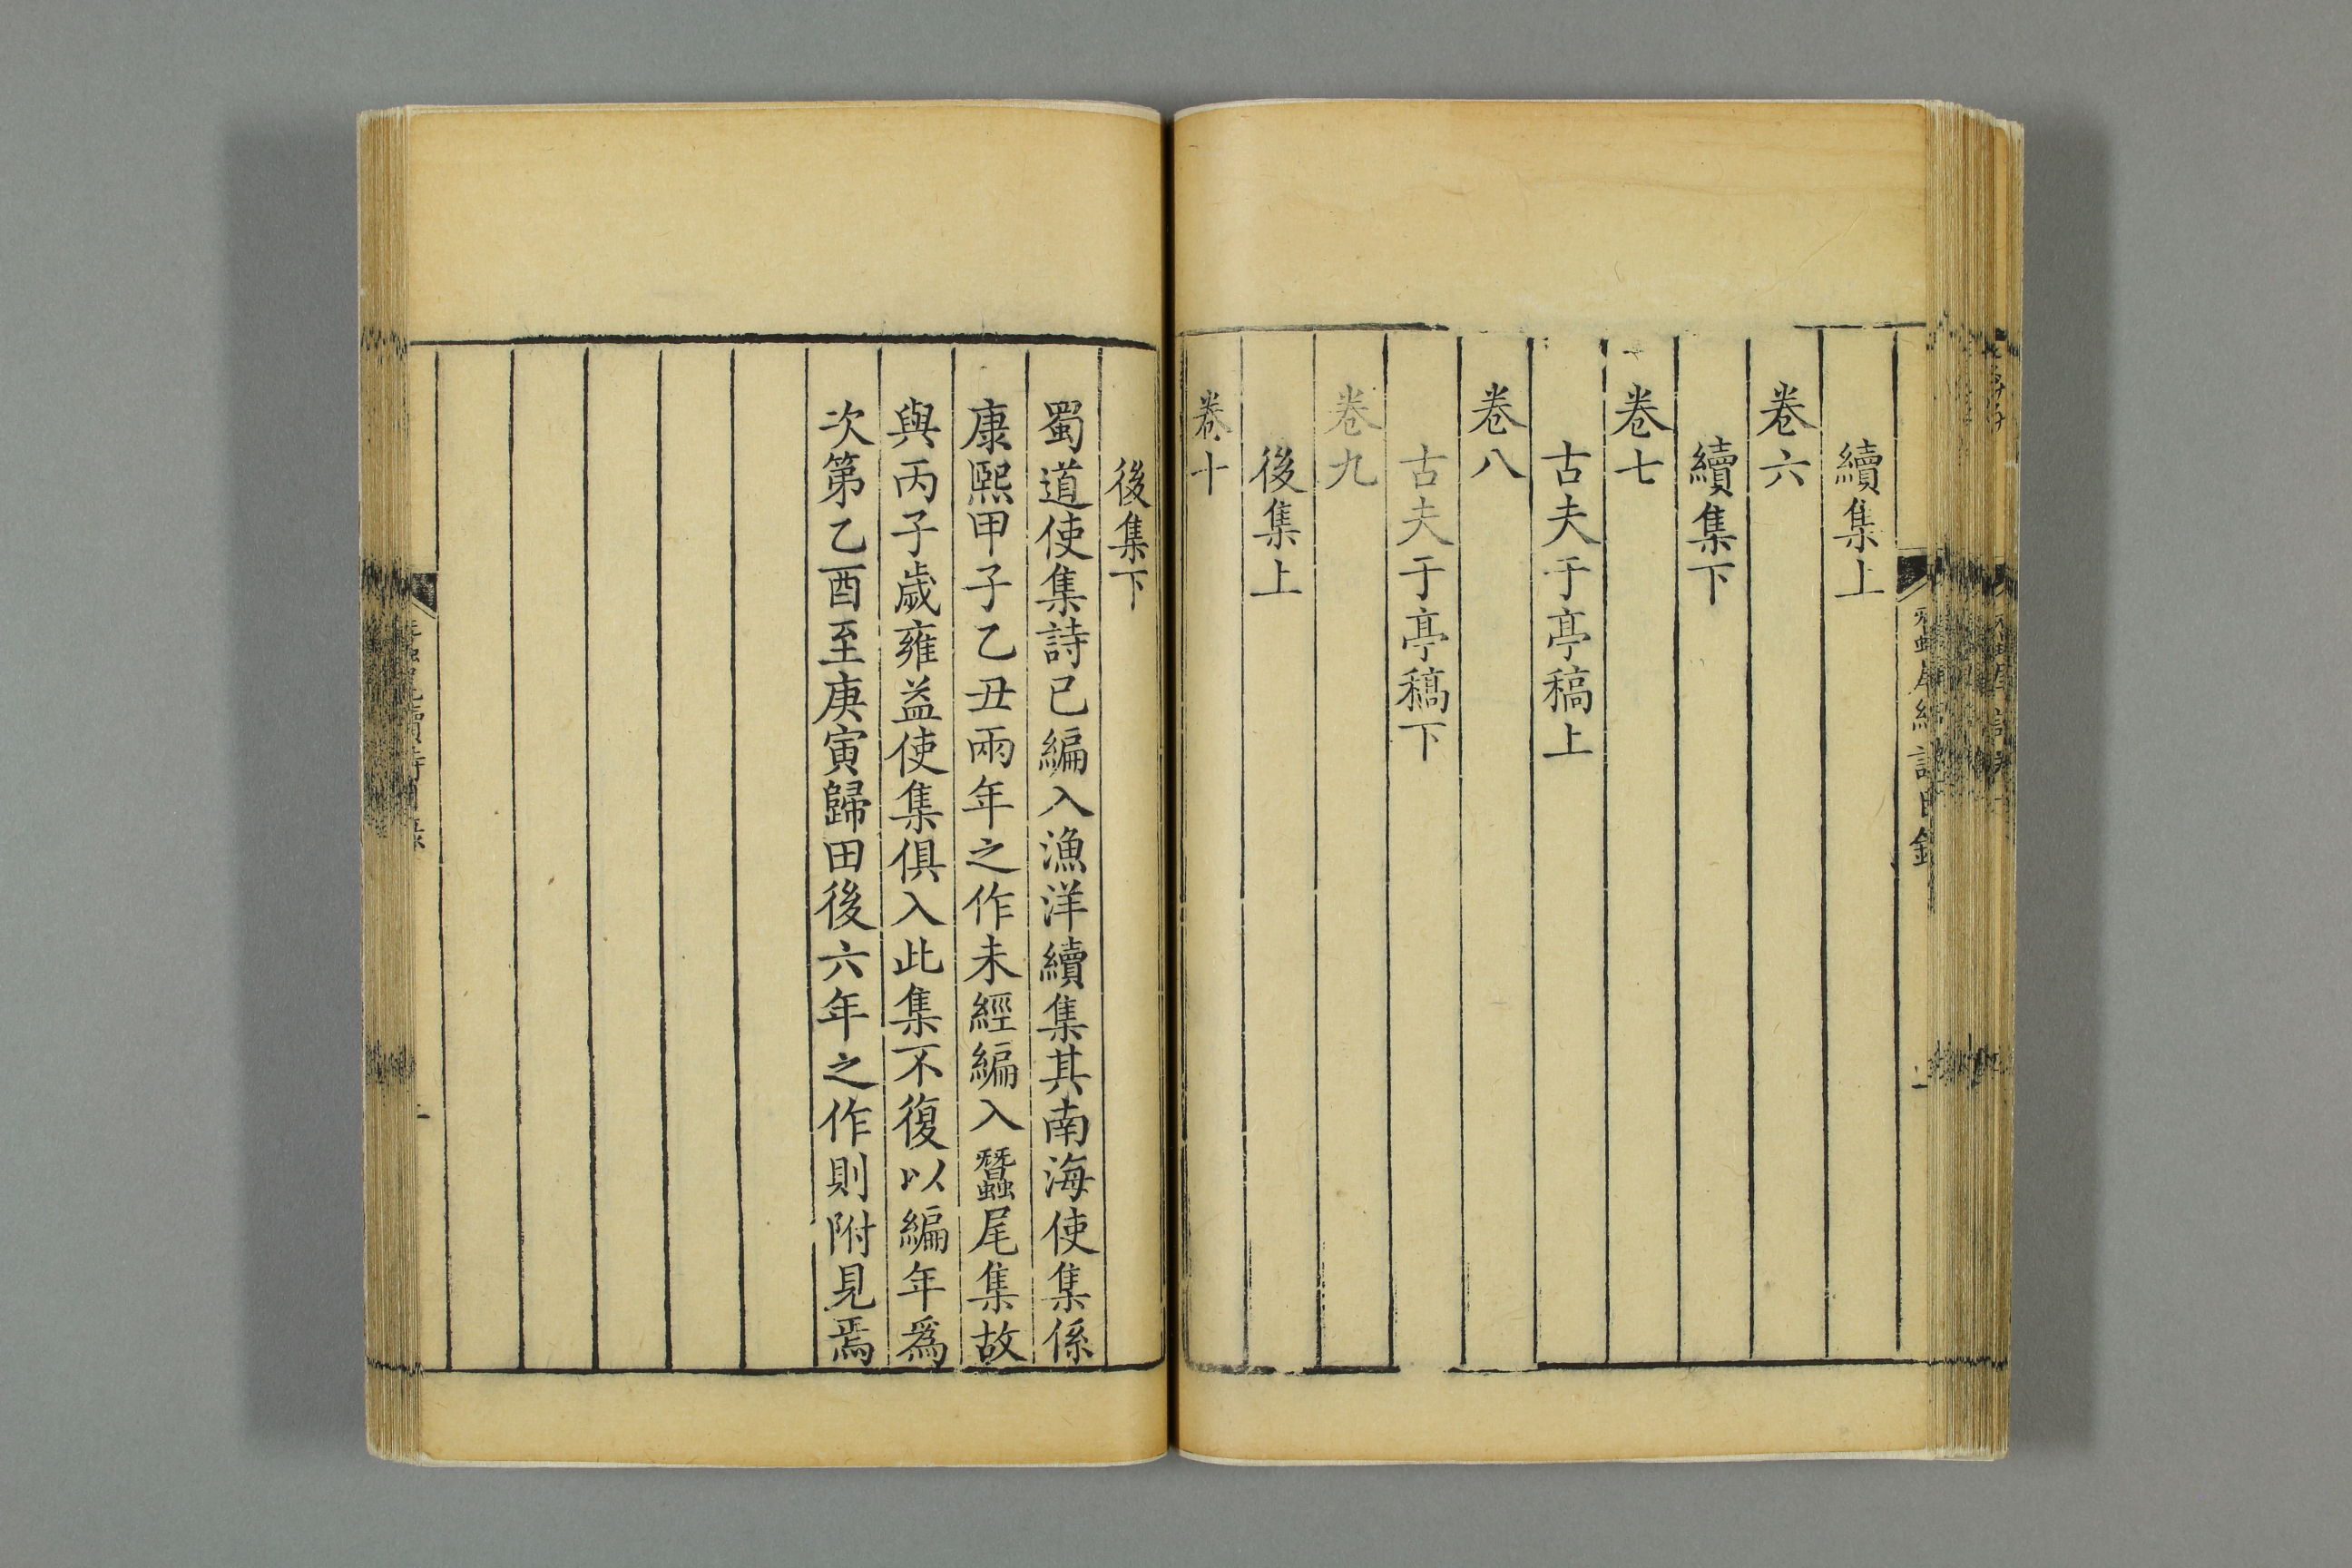 續集上
卷六
續集下
卷七
古夫于亭稿上
卷八
古夫于亭稿下
卷九
後集上
卷十
後集下
蜀道使集詩已編入漁洋續集其南海使集係
康熙甲子乙丑兩年之作未經編入蠶尾集故
與丙子歲雍益使集俱入此集不復以編年爲
次第乙酉至庚寅歸田後六年之作則附見焉